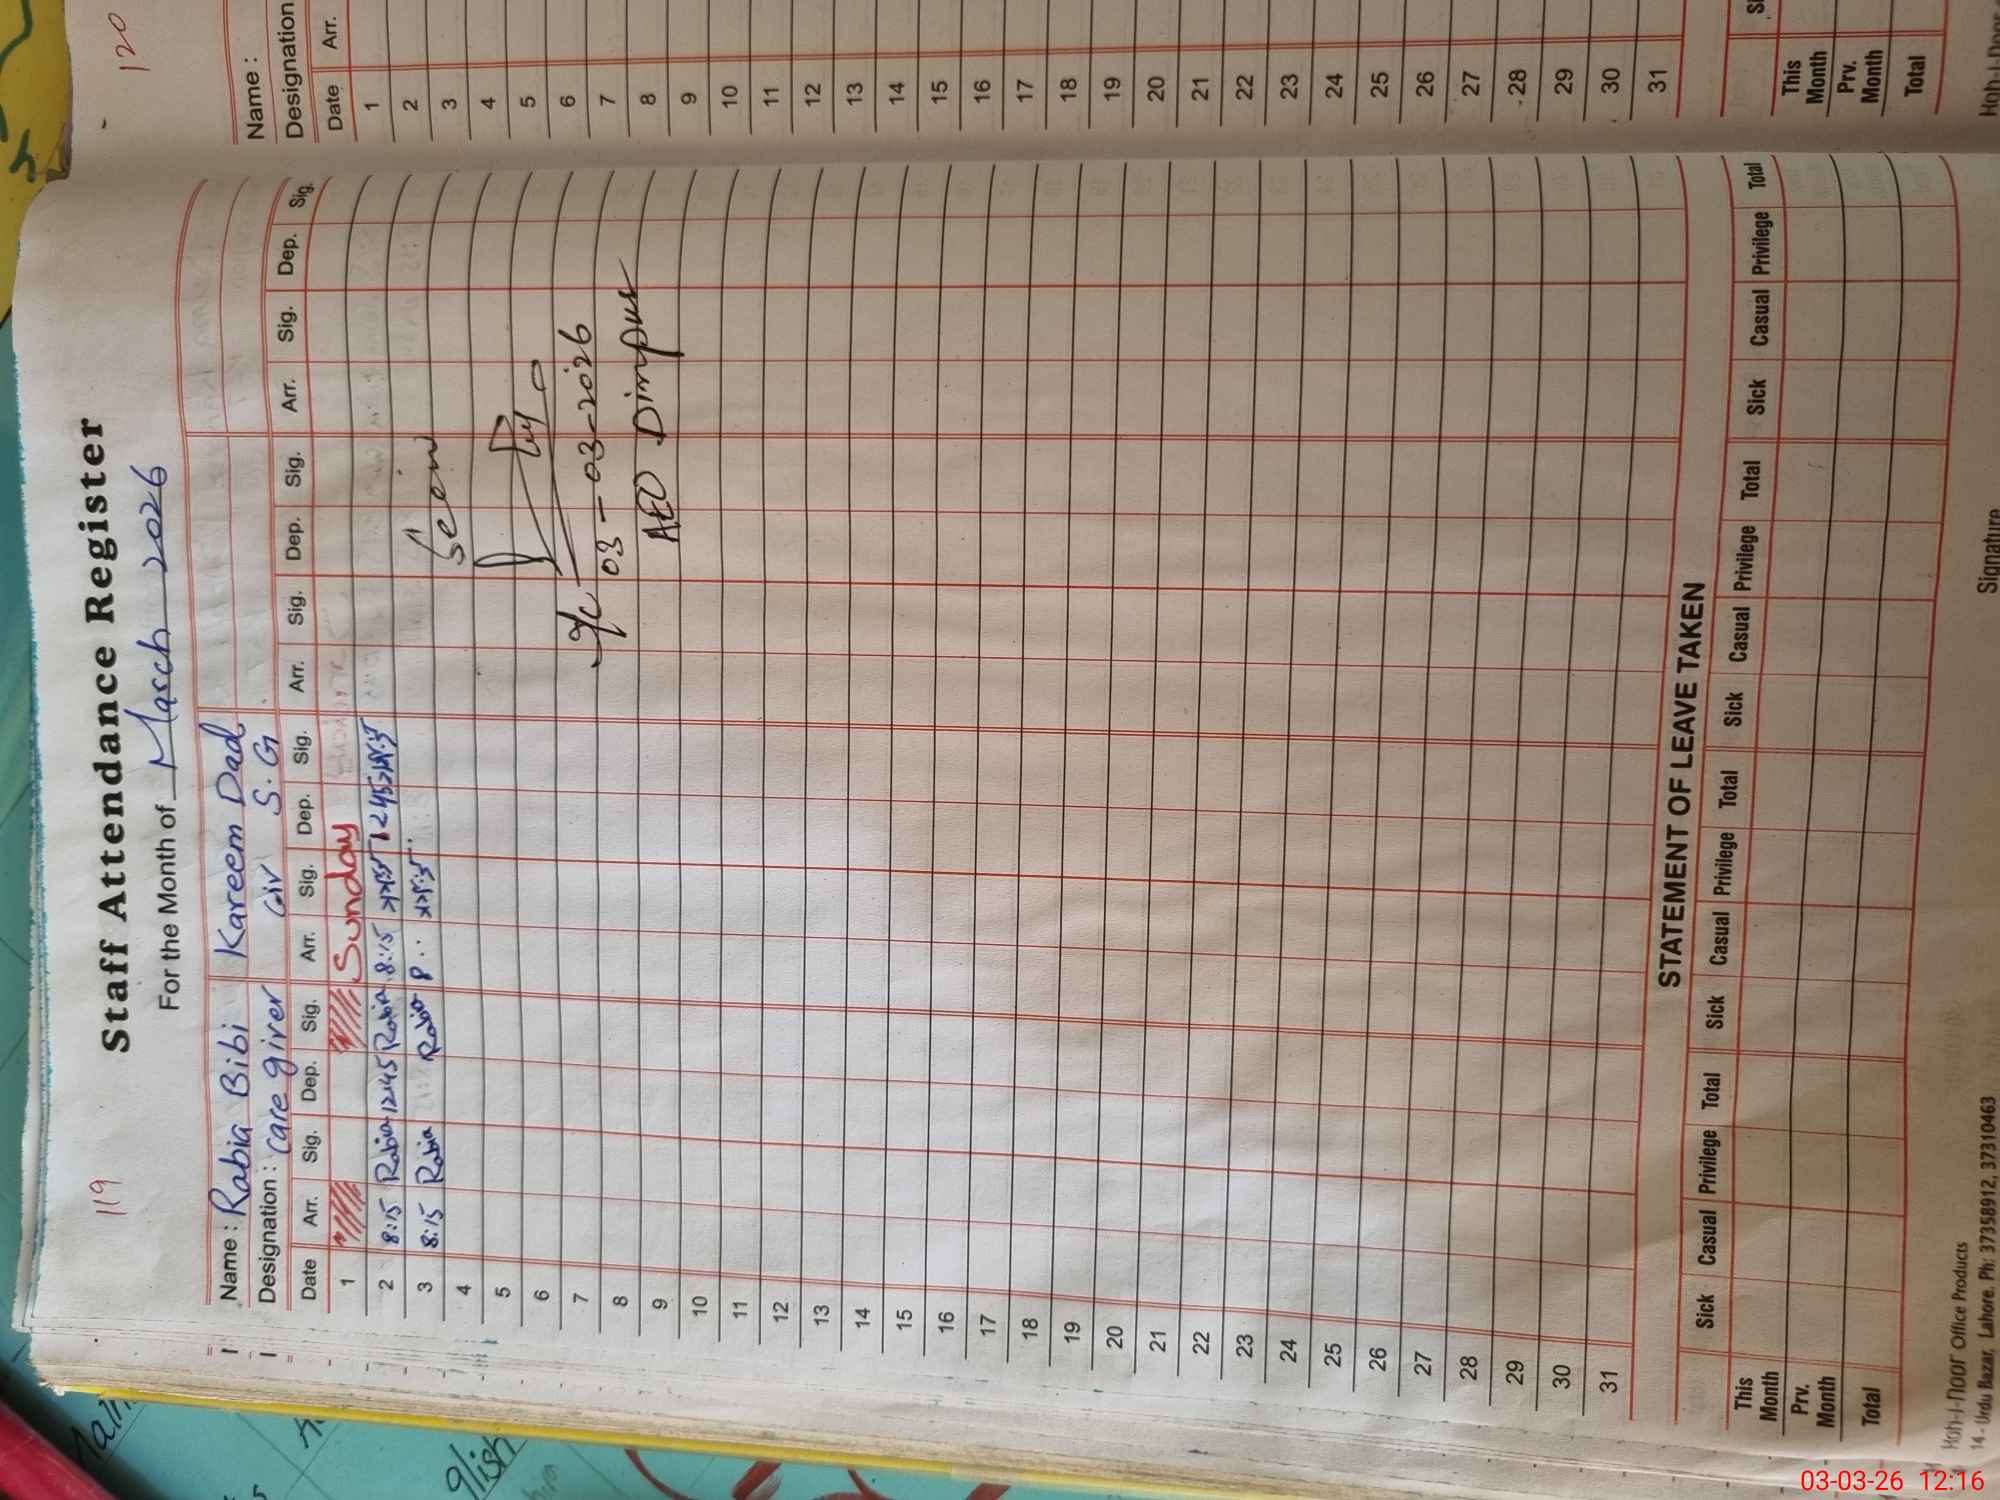 119
Staff Attendance Register
For the Month of March 2026
Name : Rabia Bibi Kareem Dad
Designation : care giver Civ S.G
Date Arr. Sig. Dep. Sig. Arr. Sig. Dep. Sig. Arr. Sig. Dep. Sig. Arr. Sig. Dep. Sig.
1 Sunday
2 8:15 Rabia 12:45 Rabia 8:15 12:45
3 8:15 Rabia Rabia 8:
4
5
6
7
8
9
10
11
12
13
14
15
16
17
18
19
20
21
22
23
24
25
26
27
28
29
30
31
Seen
03-03-2026
AEO Dimpur
STATEMENT OF LEAVE TAKEN
Sick Casual Privilege Total Sick Casual Privilege Total Sick Casual Privilege Total Sick Casual Privilege Total
This Month
Prv. Month
Total
Koh-i-Noor Office Products
14 - Urdu Bazar, Lahore. Ph: 37358912, 37310463
Signature
120
Name :
Designation
Date Arr.
1
2
3
4
5
6
7
8
9
10
11
12
13
14
15
16
17
18
19
20
21
22
23
24
25
26
27
28
29
30
31
Si
This Month
Prv. Month
Total
Koh-i-Noor
glish
03-03-26 12:16